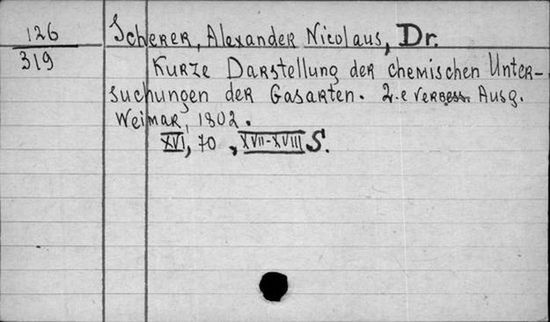 126
319
Scherer, Alexander Nicolaus, Dr.
Kurze Darstellung der chemischen Unter-
suchungen der Gasarten. 2.e verbess. Ausg.
Weimar, 1802.
XVI, 70, XVII-XVIII S.